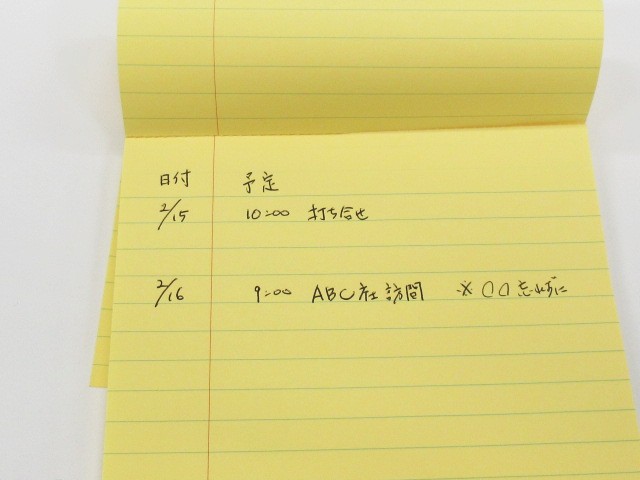 日付 予定
2/15 10:00 打ち合せ
2/16 9:00 ABC社訪問 ※〇〇忘れずに